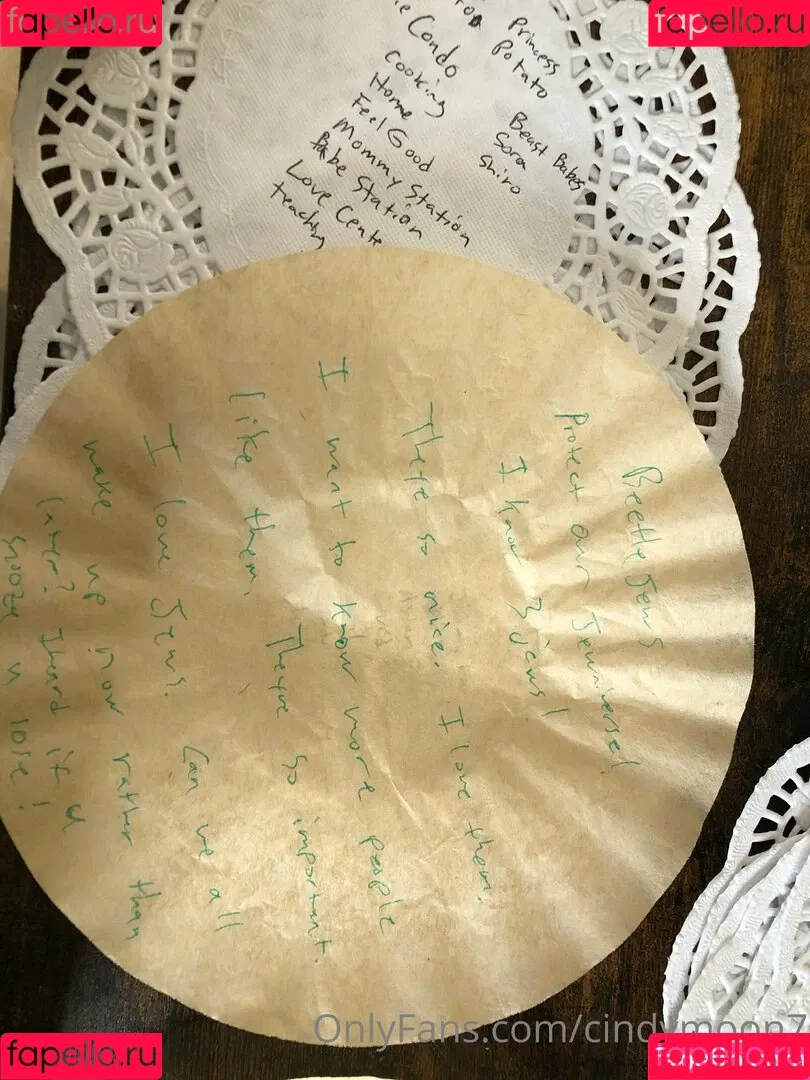 fapello.ru
fapello.ru
e Condo
Cooking
Home
Feel Good
Mommy Station
Babe Station
Love Cente
teaching
Princess
Potato
Beast Babes
Sora
Shiro
Beetle Jews
Protect our Jewniverse!
I know 3 jews!
Theye so nice. I love them.
I want to know more people
like them. Theyre so important.
I love Jews. Can we all
make up now rather than
later? I heard if u
snooze u lose!
OnlyFans.com/cindymoon7
fapello.ru
fapello.ru